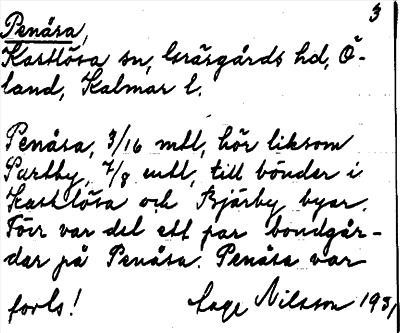 3
Penåsa,
Kastlösa sn, Gräsgårds hd, Ö-
land, Kalmar l.
Penåsa, 3/16 mtl, hör liksom
Partby, 7/8 mtl, till bönder i
Kastlösa och Bjärby byar.
Förr var det ett par bondgår-
dar på Penåsa. Penåsa var
forts! Nilsson 1931